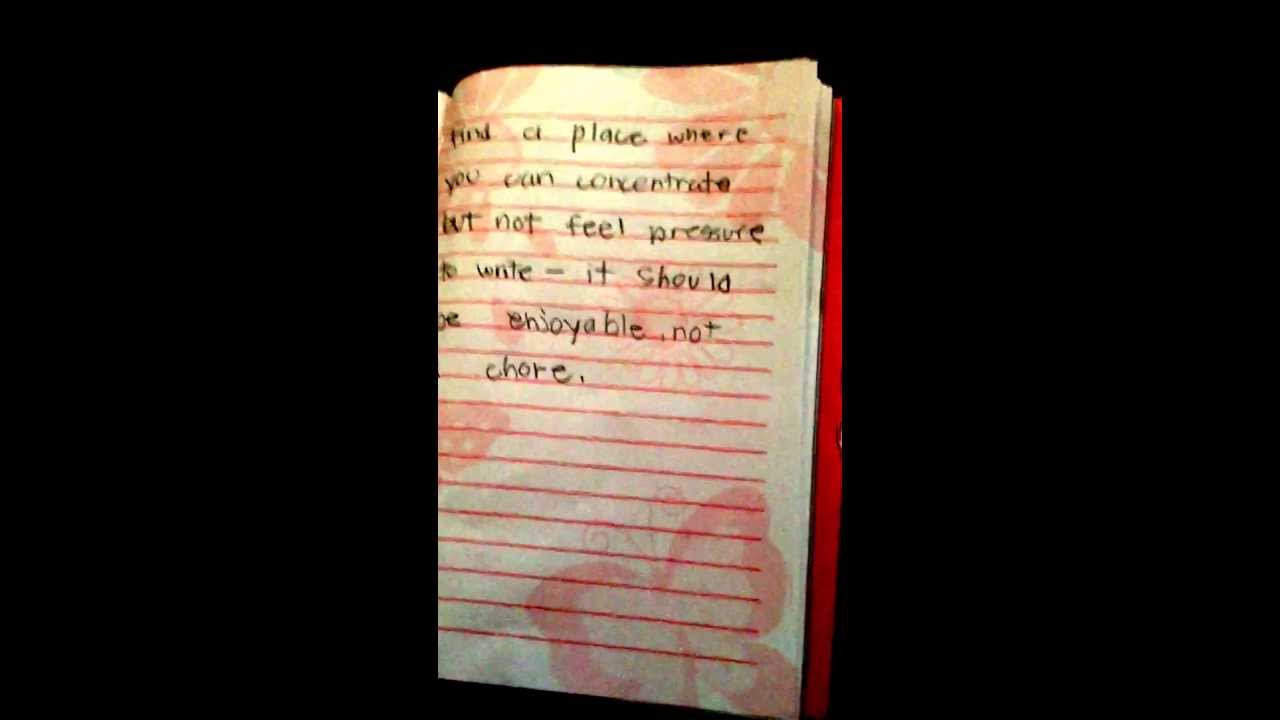 find a place where
you can concentrate
but not feel pressure
to write – it should
be enjoyable, not
chore.